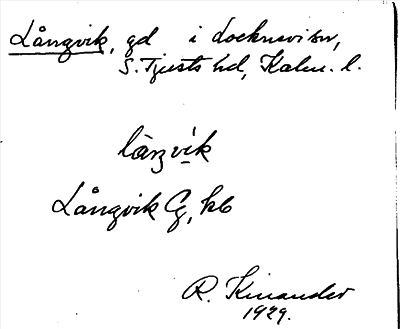 Långvik, gd i Locknevi sn,
S. Tjusts hd, Kalm. l.
làŋvi̱k
Långvik G, kb
R. Kinander
1929.